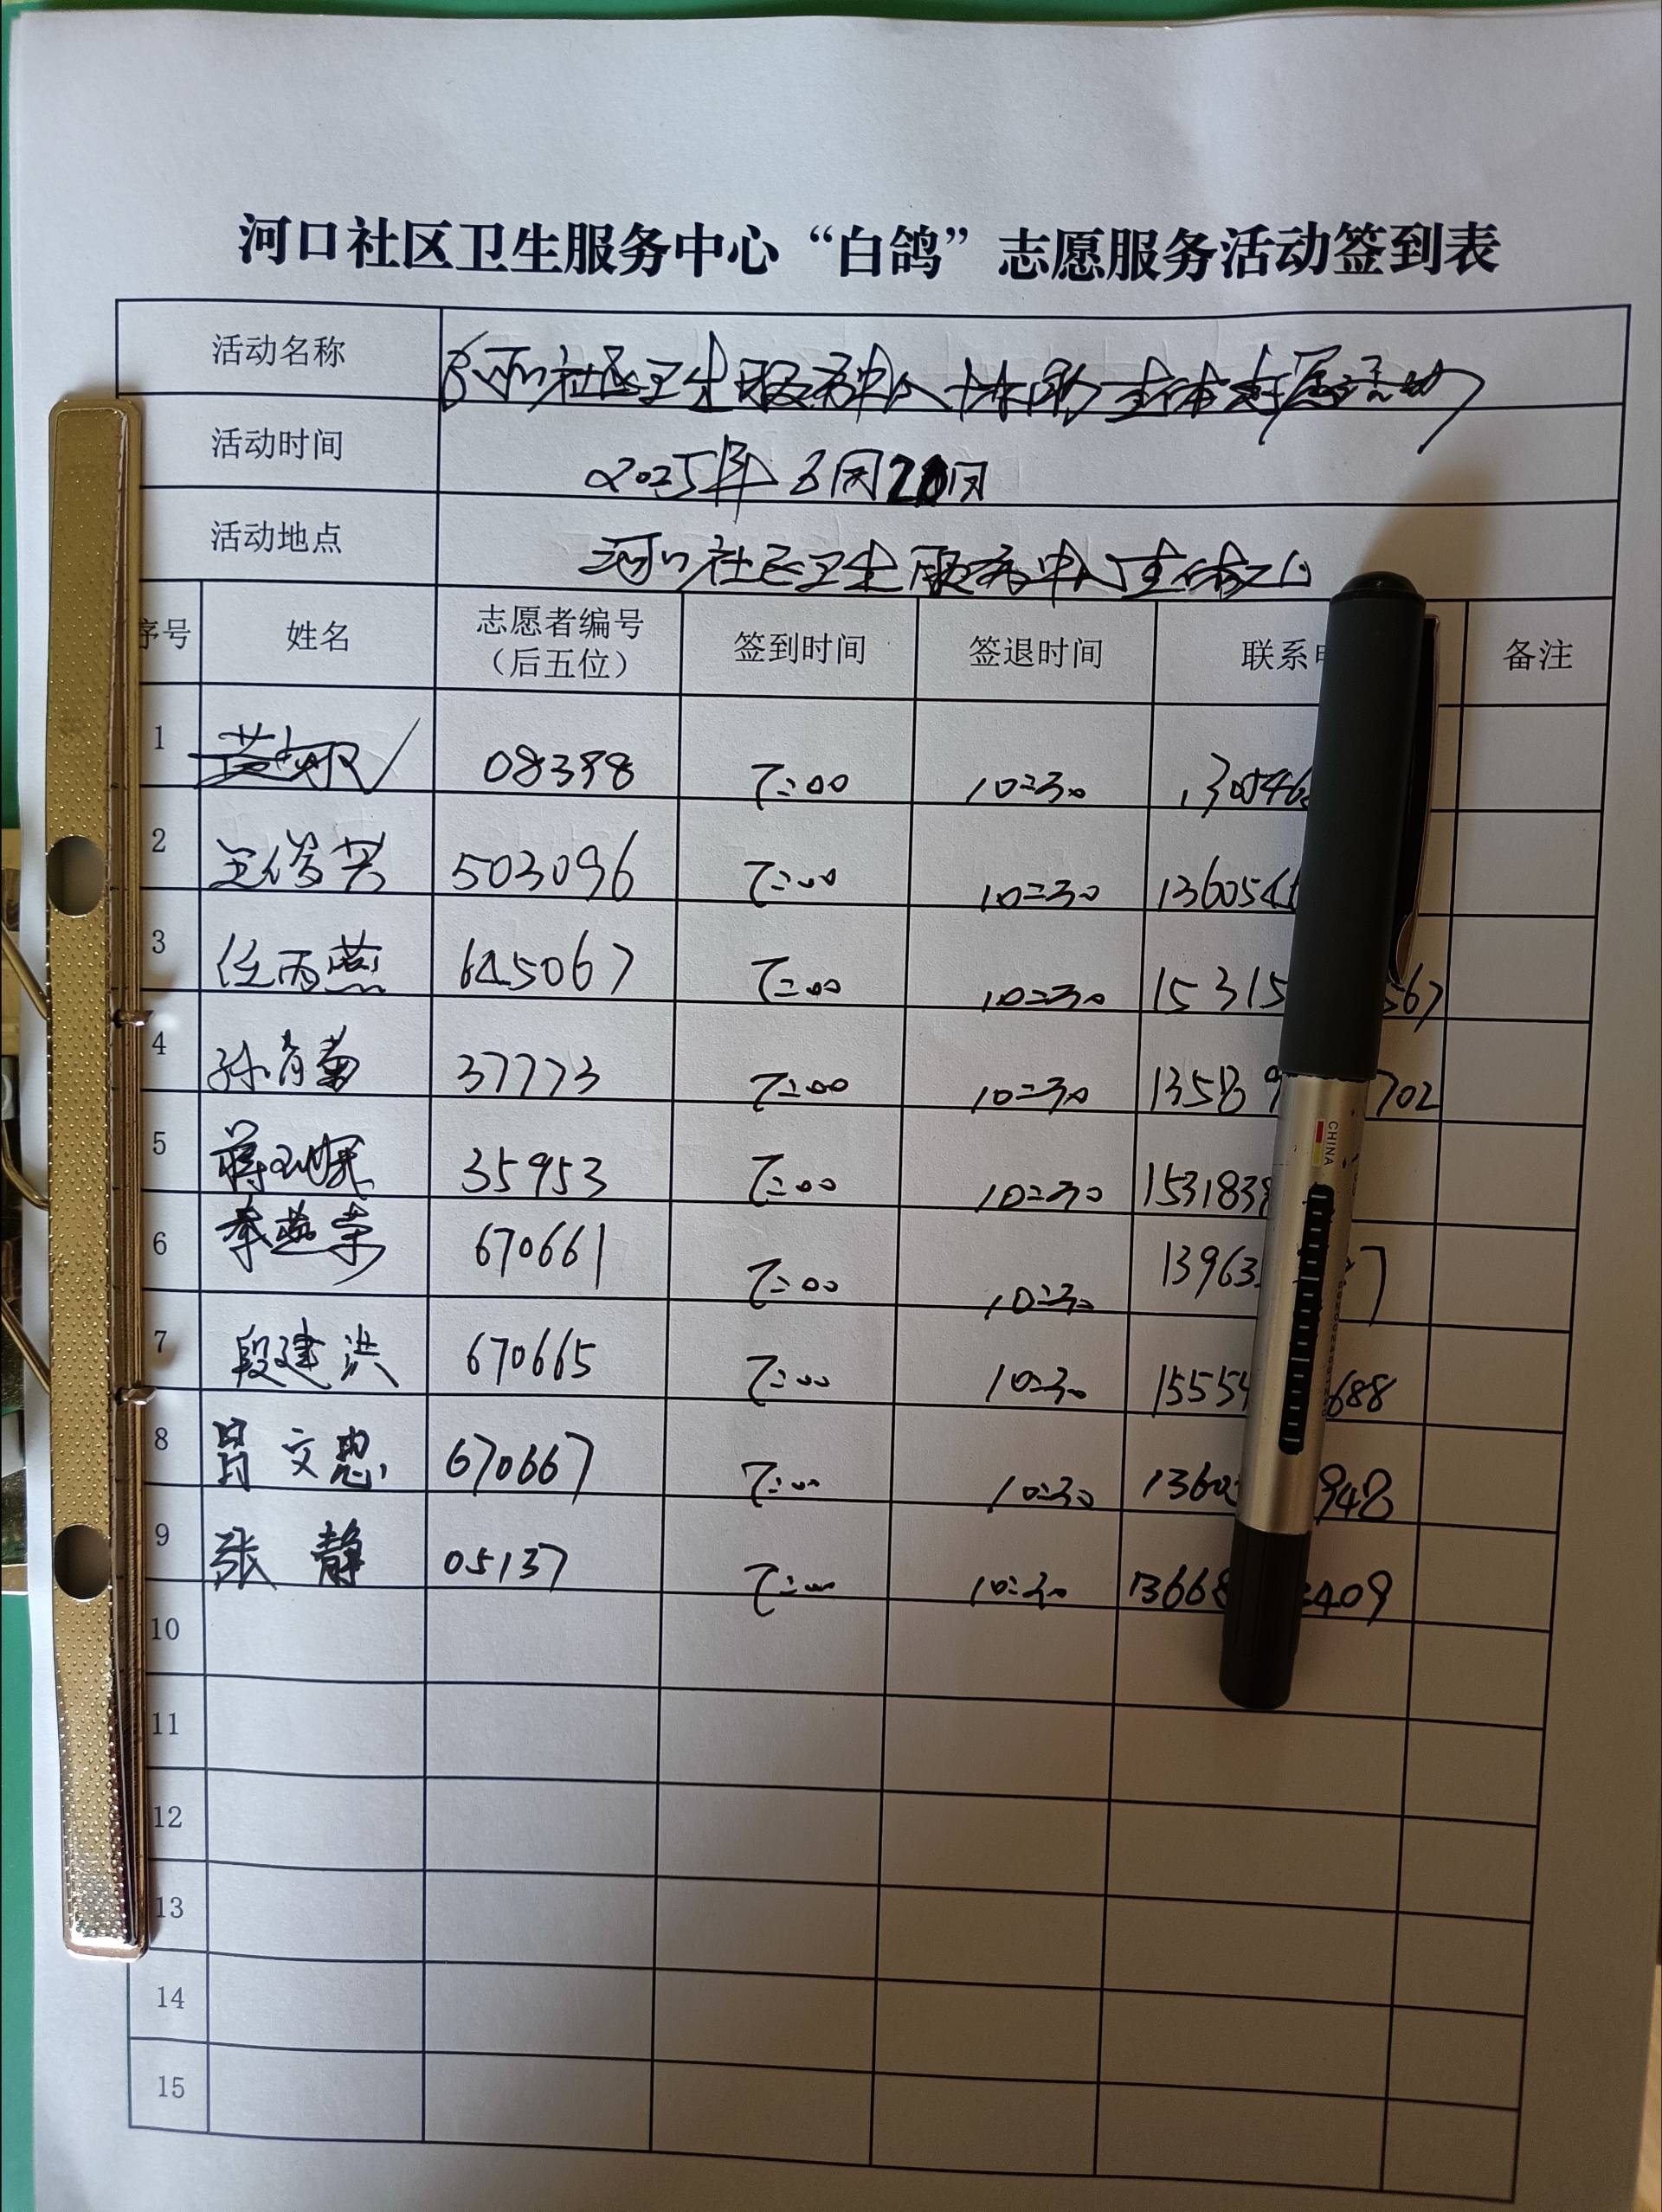 河口社区卫生服务中心“白鸽”志愿服务活动签到表
活动名称 河口社区卫生服务中心 志愿活动
活动时间 2025年6月
活动地点 河口社区卫生服务中心
序号 姓名 志愿者编号（后五位） 签到时间 签退时间 联系 备注
1 08398 7:00 10:30 130546
2 503096 7:00 10:30 13605
3 任丙燕 645067 7:00 10:30 15315 567
4 孙肖菊 37773 7:00 10:30 13589 702
5 35953 7:00 10:30 153183
6 670661 7:00 10:30 13963 7
7 段建洪 670665 7:00 10:30 1555 688
8 胃文忠 670667 7:00 10:30 1360 948
9 张静 05137 7:00 10:30 1366 409
10
11
12
13
14
15
CHINA